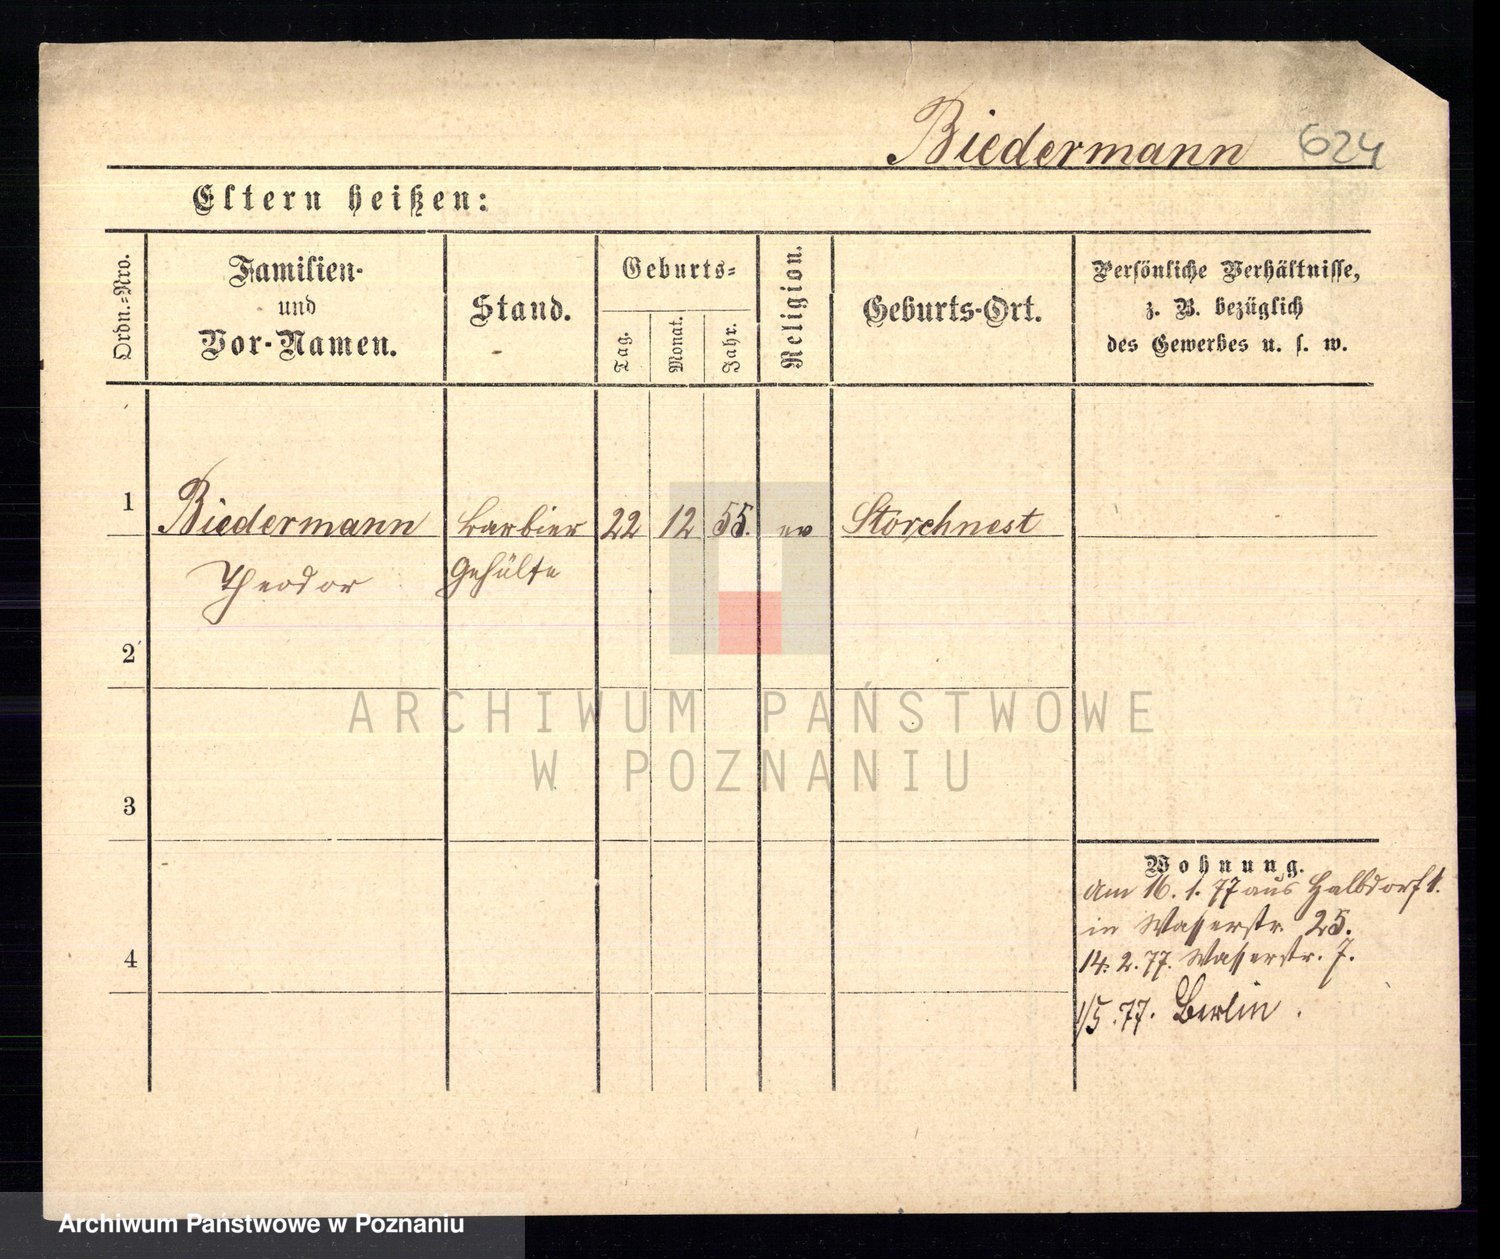 Biedermann 624
Eltern heißen:
Ordn.-Nro.
Familien-
und
Vor-Namen.
Stand.
Geburts-
Tag.
Monat.
Jahr.
Religion.
Geburts-Ort.
Persönliche Verhältnisse,
z. B. bezüglich
des Gewerbes u. s. w.
1 Biedermann Barbier 22 12 55. ev Storchnest
Theodor Gehülfe
2
3
4
Wohnung.
Am 16. 1. 77 aus Halbdorfst.
in Wasserstr. 25.
14. 2. 77. Wasserstr. 7.
1/5. 77. Berlin.
ARCHIWUM PAŃSTWOWE
W POZNANIU
Archiwum Państwowe w Poznaniu